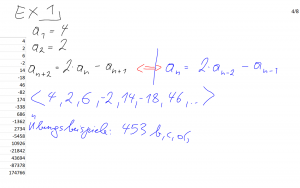 EX 1)
4/8
a₁ = 4
a₂ = 2
aₙ₊₂ = 2·aₙ − aₙ₊₁ ⇔ aₙ = 2·aₙ₋₂ − aₙ₋₁
⟨4, 2, 6, -2, 14, -18, 46, ...⟩
Übungsbeispiele: 453 b, c, d,
4
2
6
-2
14
-18
46
-82
174
-338
686
-1362
2734
-5458
10926
-21842
43694
-87378
174766